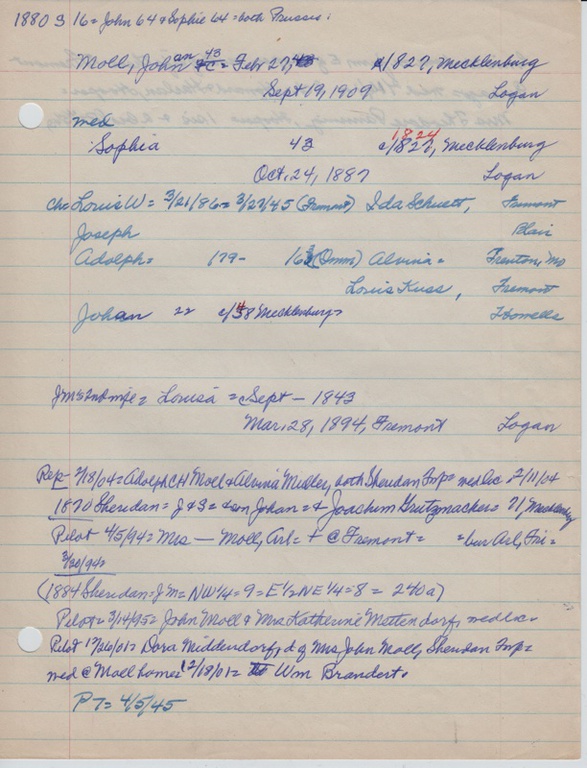 1880 S 16 = John 64 & Sophie 64 = both Prussia:
Moll, Johann 43 = Feb 27, c/1827, Mecklenburg
Sept 19, 1909 Logan
med
Sophia 43 c/1827, 1824 Mecklenburg
Oct. 24, 1887 Logan
ch: Louis W = 3/21/86 = 3/27/45 (Fremont) Ida Schuett, Fremont
Joseph Blair
Adolph = 179 - 163 (Omm) Alvina = Trenton, Mo
Louis Kuss, Fremont
Johan 22 c/48 Mecklenburg Howells
JM = 2nd wife = Louisa = Sept - 1843
Mar. 28, 1894, Fremont Logan
Rep - 2/18/04 = Adolph CH Moll & Alvina Medley, both Sheridan Twp = wed lic 2/11/04
1870 Sheridan = J & S = & son Johan = & Joachim Grutzmacher = 71, Mecklenburg
Pilot 4/5/94 = Mrs — Moll, Arl = + @ Fremont = = bur Arl, Fri =
3/30/94 =
(1884 Sheridan = JM = NW 1/4 = 9 = E 1/2 NE 1/4 = 8 = 240a)
Pilot = 3/14/95 = John Moll & Mrs Katherine Mattendorf, wed lic.
Pilot 12/26/01 = Dora Middendorf, d of Mrs John Moll, Sheridan Twp =
wed @ Moll home = 12/18/01 = to Wm Brandert.
P T = 4/5/45